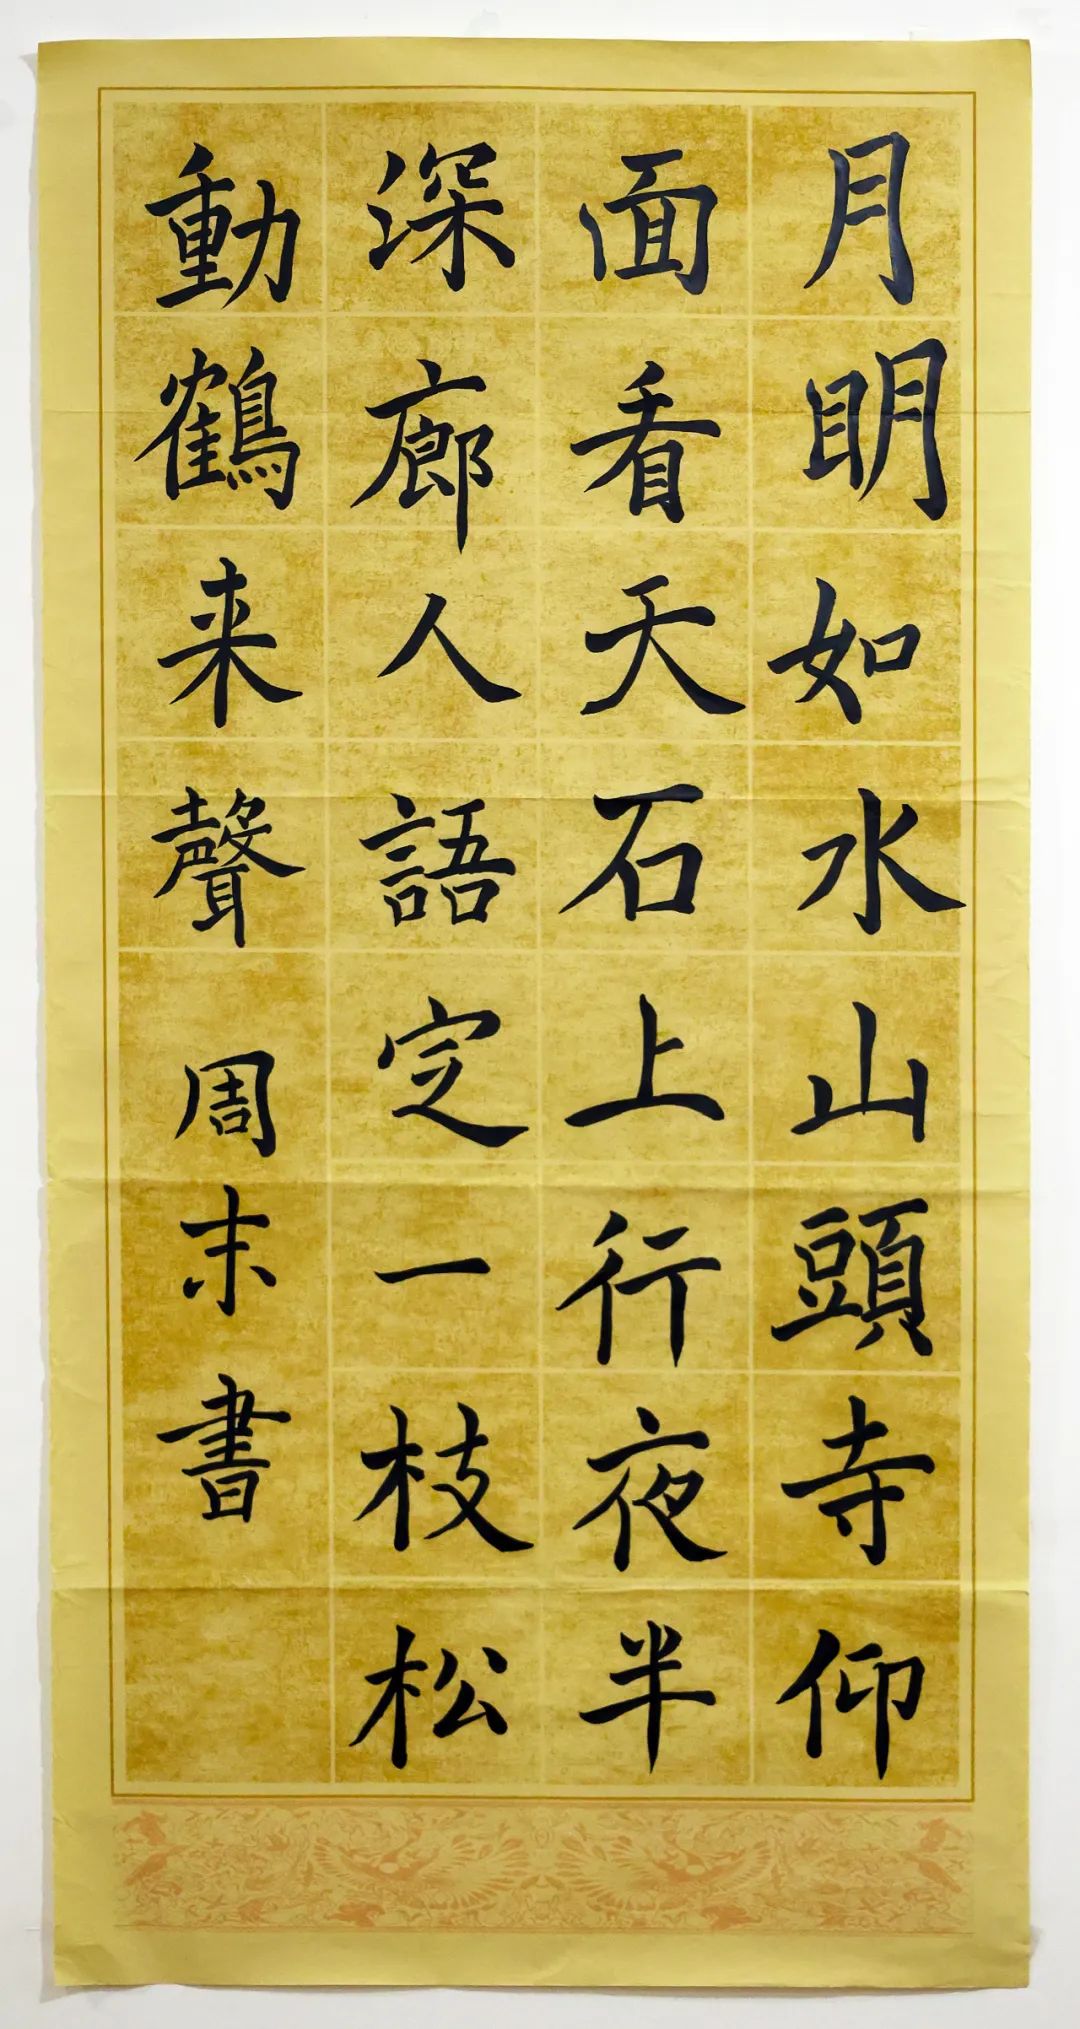 月明如水山頭寺仰
面看天石上行夜半
深廊人語定一枝松
動鶴来聲
周末書